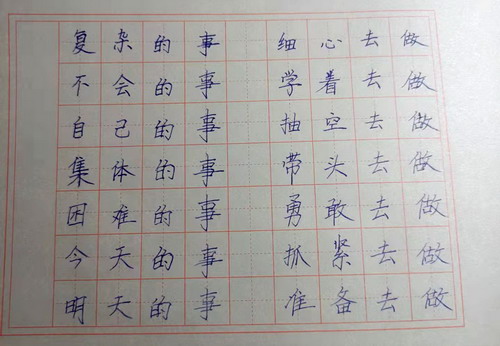 复杂的事 细心去做
不会的事 学着去做
自己的事 抽空去做
集体的事 带头去做
困难的事 勇敢去做
今天的事 抓紧去做
明天的事 准备去做